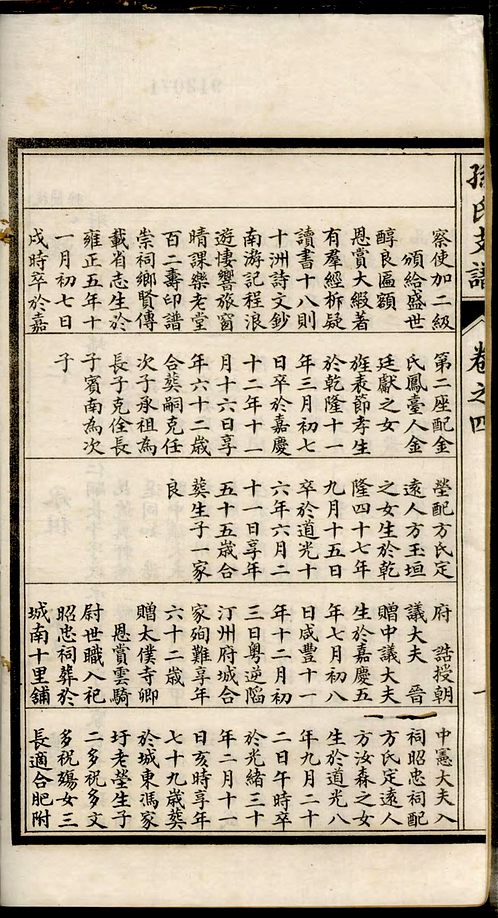 孫氏支譜
卷之四
一
察使加二級
頒給盛世
醇良匾額
恩賞大緞著
有羣經析疑
讀書十八則
十洲詩文鈔
南游記程浪
遊悽響旅窗
晴課樂老堂
百二壽印譜
崇祀鄉賢傳
載省志生於
雍正五年十
一月初七日
戌時卒於嘉
第二座配金
氏鳳臺人金
廷獻之女
旌表節孝生
於乾隆十一
年三月初七
日卒於嘉慶
十二年十一
月十六日享
年六十二歲
合葬嗣克任
次子承祖為
長子克佺長
子賓南為次
子
塋配方氏定
遠人方玉垣
之女生於乾
隆四十七年
九月十五日
卒於道光十
六年六月二
十一日享年
五十五歲合
葬生子一家
良
府 誥授朝
議大夫 晉
贈中議大夫
生於嘉慶五
年七月初八
日咸豐十一
年十二月初
三日粵逆陷
汀州府城合
家殉難享年
六十二歲
贈太僕寺卿
恩賞雲騎
尉世職入祀
昭忠祠葬於
城南十里舖
中憲大夫入
祠昭忠祠配
方氏定遠人
方汝森之女
生於道光八
年九月二十
二日午時卒
於光緒三十
年二月十一
日亥時享年
七十九歲葬
於城東馮家
圩老塋生子
二多祝多文
多祝殤女三
長適合肥附